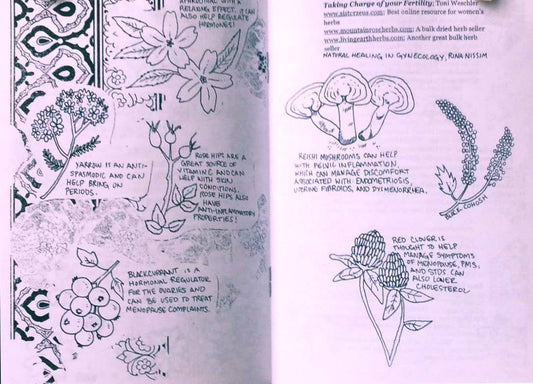 APHRODISIAC WITH A
RELAXING EFFECT. IT CAN
ALSO HELP REGULATE
HORMONES!
YARROW IS AN ANTI-
SPASMODIC AND CAN
HELP BRING ON
PERIODS.
ROSE HIPS ARE A
GREAT SOURCE OF
VITAMIN C AND CAN
HELP WITH SKIN
CONDITIONS.
ROSE HIPS ALSO
HAVE
ANTI-INFLAMMATORY
PROPERTIES!
BLACKCURRANT IS A
HORMONAL REGULATOR
FOR THE OVARIES AND
CAN BE USED TO TREAT
MENOPAUSE COMPLAINTS.
Taking Charge of your Fertility; Toni Weschler
www.sisterzeus.com: Best online resource for women's
herbs
www.mountainroseherbs.com: A bulk dried herb seller
www.livingearthherbs.com: Another great bulk herb
seller
NATURAL HEALING IN GYNECOLOGY, RINA NISSIM
REICHI MUSHROOMS CAN HELP
WITH PELVIC INFLAMMATION,
WHICH CAN MANAGE DISCOMFORT
ASSOCIATED WITH ENDOMETRIOSIS,
UTERINE FIBROIDS, AND DYSMENORRHEA.
BLACK COHOSH
RED CLOVER IS
THOUGHT TO HELP
MANAGE SYMPTOMS
OF MENOPAUSE, PMS,
AND STDS. CAN
ALSO LOWER
CHOLESTEROL